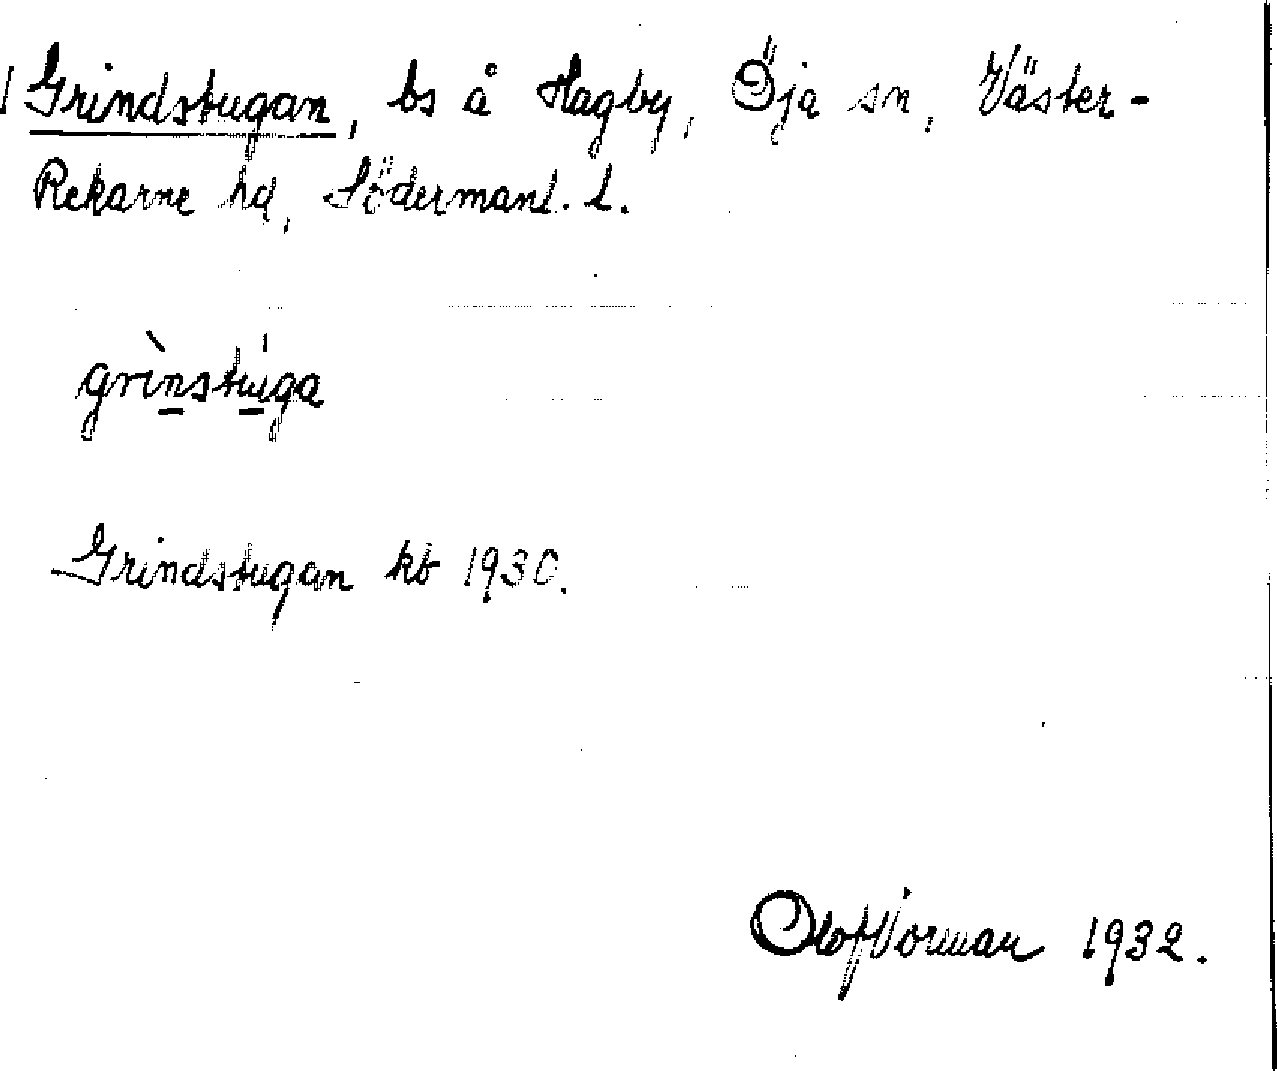 Grindstugan, bs å Hagby, Öja sn, Väster-
Rekarne hd, Södermanl. l.
grìnstúga
Grindstugan kb 1930.
Olof Vorman 1932.